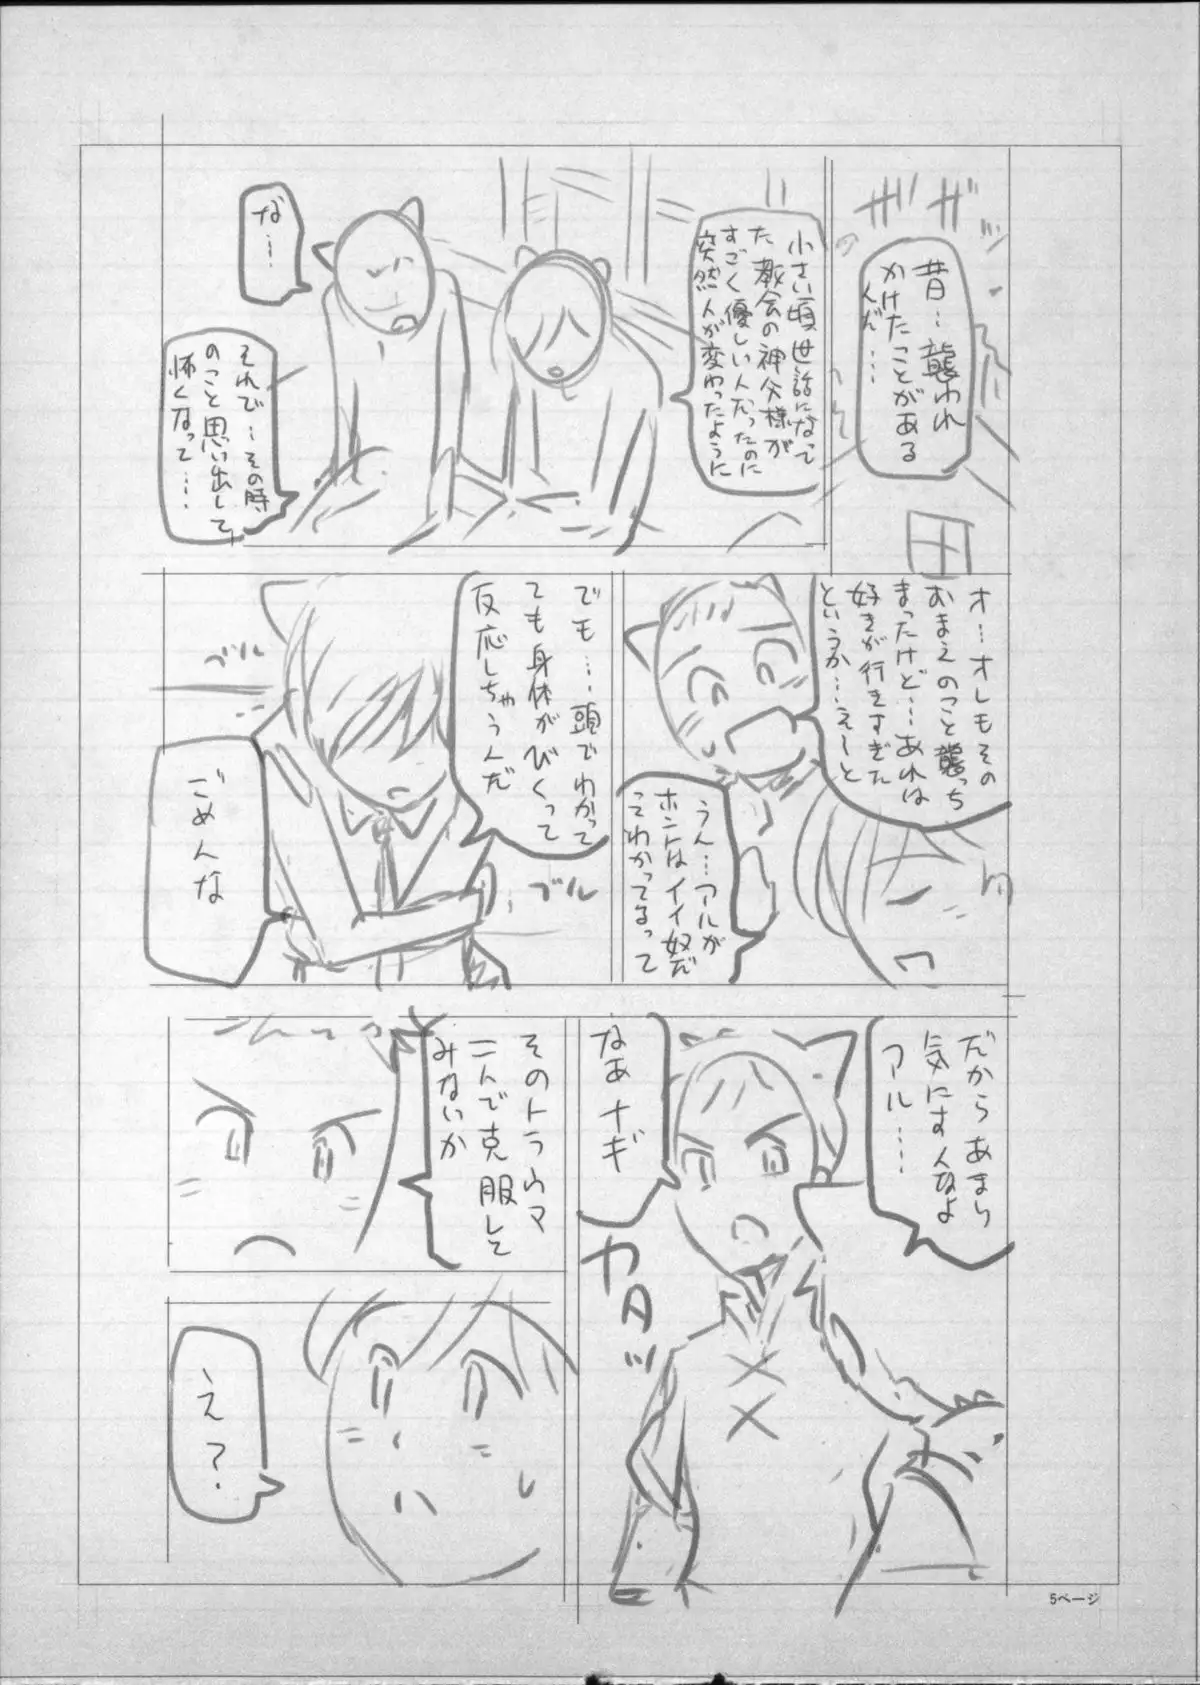 ザザッ
昔…襲われ
かけたことがある
んだ…
小さい頃世話になって
た教会の神父様が
すごく優しい人だったのに
突然人が変わったように
な…
それで…その時
のこと思い出して、
怖くなって……
オ…オレもその
おまえのこと襲っち
まったけど…あれは
好きが行きすぎた
というか……えーと
うん…アルが
ホントはイイ奴だ
ってわかってるって
でも…頭でわかって
ても身体がびくって
反応しちゃうんだ
ブル
ブル
ごめんな
だからあまり
気にすんなよ
アル……
なあナギ
ガタッ
そのトラウマ
二人で克服して
みないか
え?
5ページ